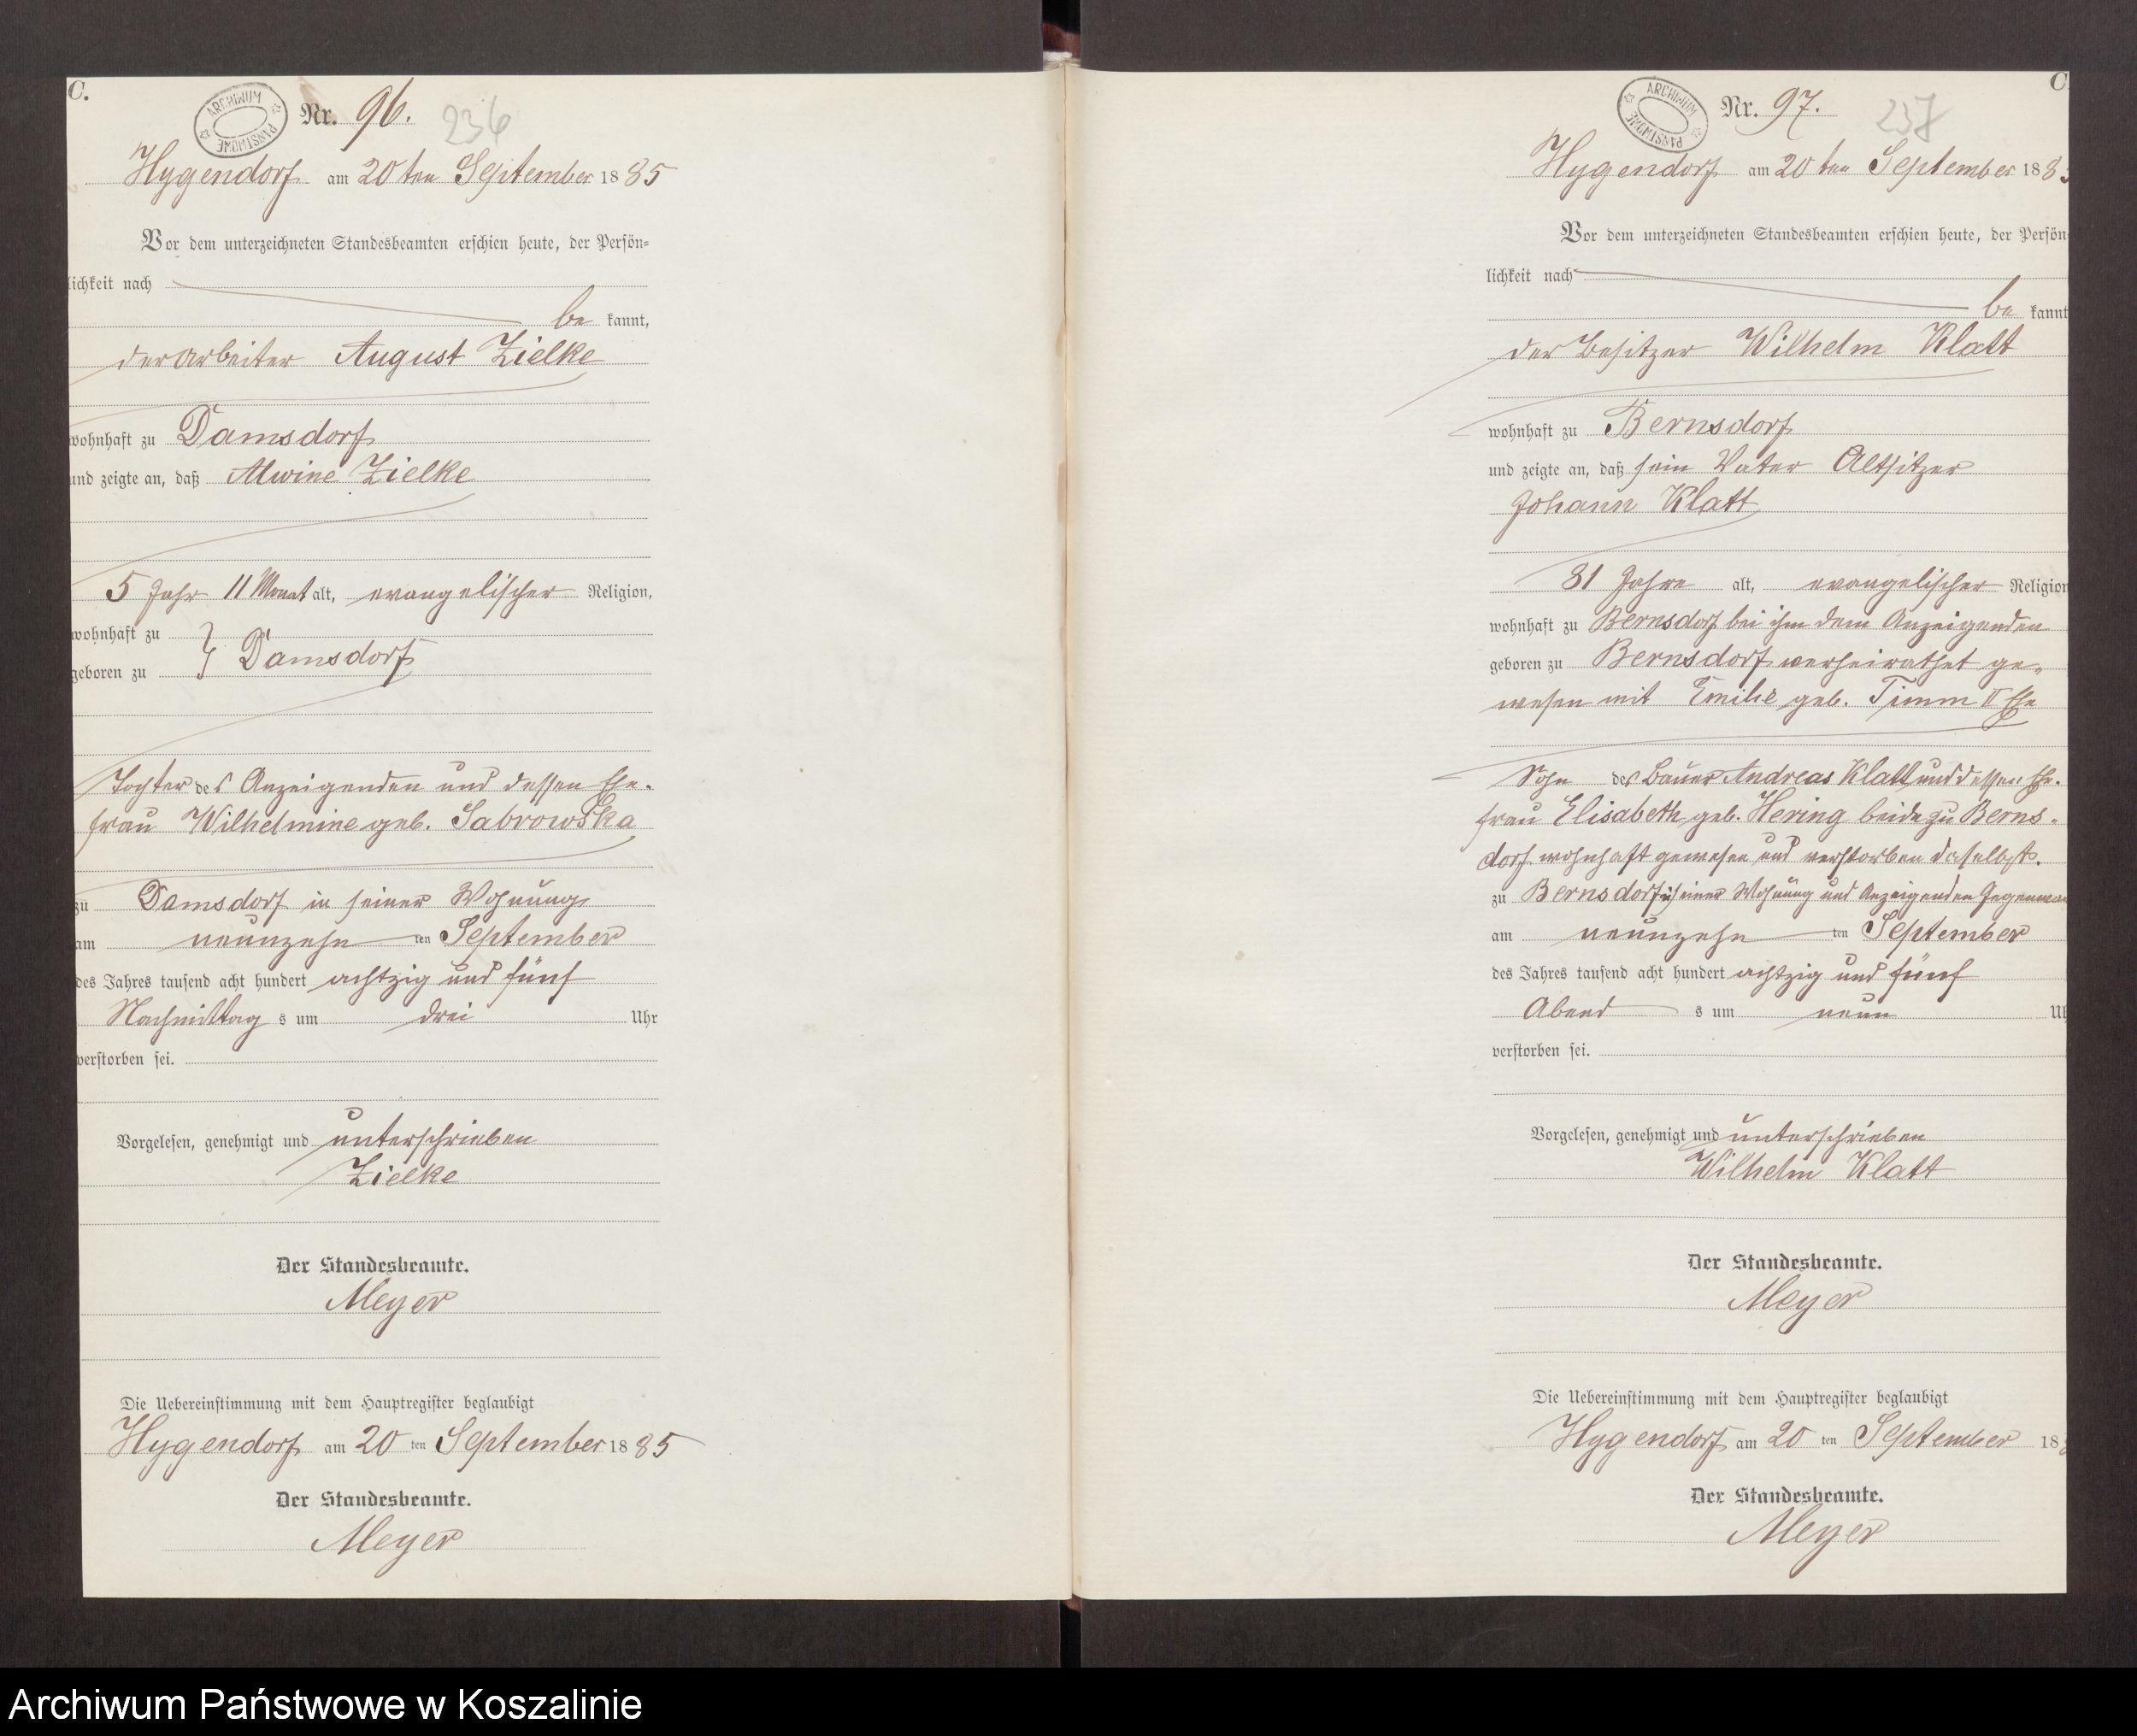 C.
ARCHIWUM PAŃSTWOWE
Nr. 96.
236
Hygendorf am 20ten September 1885
Vor dem unterzeichneten Standesbeamten erschien heute, der Persön=
lichkeit nach
be kannt,
der Arbeiter August Zielke
wohnhaft zu Damsdorf
und zeigte an, daß Alwine Zielke
5 Jahr 11 Monat alt, evangelischer Religion,
wohnhaft zu
geboren zu } Damsdorf
Tochter des Anzeigenden und dessen Ehe-
frau Wilhelmine geb. Sabrowska
zu Damsdorf in seiner Wohnung
am neunzehn ten September
des Jahres tausend acht hundert achtzig und fünf
Nachmittag s um drei Uhr
verstorben sei.
Vorgelesen, genehmigt und unterschrieben
Zielke
Der Standesbeamte.
Meyer
Die Uebereinstimmung mit dem Hauptregister beglaubigt
Hygendorf am 20 ten September 1885
Der Standesbeamte.
Meyer
C
ARCHIWUM PAŃSTWOWE
Nr. 97.
237
Hygendorf am 20ten September 188
Vor dem unterzeichneten Standesbeamten erschien heute, der Persön
lichkeit nach
be kannt
der Besitzer Wilhelm Klatt
wohnhaft zu Bernsdorf
und zeigte an, daß sein Vater Altsitzer
Johann Klatt
81 Jahre alt, evangelischer Religion
wohnhaft zu Bernsdorf bei ihm dem Anzeigenden
geboren zu Bernsdorf verheirathet ge-
wesen mit Emilie geb. Timm II Ehe
Sohn des Bauer Andreas Klatt und dessen Ehe-
frau Elisabeth geb. Hering beide zu Berns-
dorf wohnhaft gewesen und verstorben daselbst.
zu Bernsdorf in seiner Wohnung und Anzeigenden Gegenwar
am neunzehn ten September
des Jahres tausend acht hundert achtzig und fünf
Abend s um neun U
verstorben sei.
Vorgelesen, genehmigt und unterschrieben
Wilhelm Klatt
Der Standesbeamte.
Meyer
Die Uebereinstimmung mit dem Hauptregister beglaubigt
Hygendorf am 20 ten September 188
Der Standesbeamte.
Meyer
Archiwum Państwowe w Koszalinie